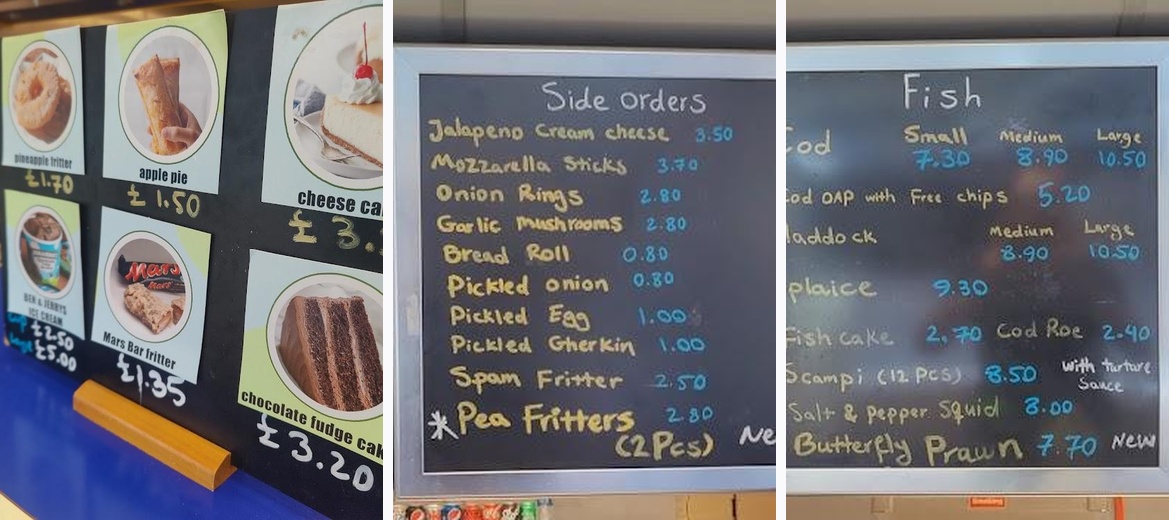 pineapple fritter
£1.70
apple pie
£1.50
cheese ca
£3.
BEN & JERRYS
ICE CREAM
£2.50
£5.00
Mars
Mars
Mars Bar fritter
£1.35
chocolate fudge cak
£3.20
Side orders
Jalapeno Cream cheese 3.50
Mozzarella Sticks 3.70
Onion Rings 2.80
Garlic mushrooms 2.80
Bread Roll 0.80
Pickled onion 0.80
Pickled Egg 1.00
Pickled Gherkin 1.00
Spam Fritter 2.50
*Pea Fritters 2.80
(2Pcs) Ne
Fish
Small Medium Large
Cod 7.30 8.90 10.50
Cod OAP with Free chips 5.20
Medium Large
addock 8.90 10.50
plaice 9.30
Fish cake 2.70 Cod Roe 2.40
Scampi (12 PCS) 8.50 with turture
Sauce
Salt & pepper Squid 8.00
Butterfly Prawn 7.70 NEW